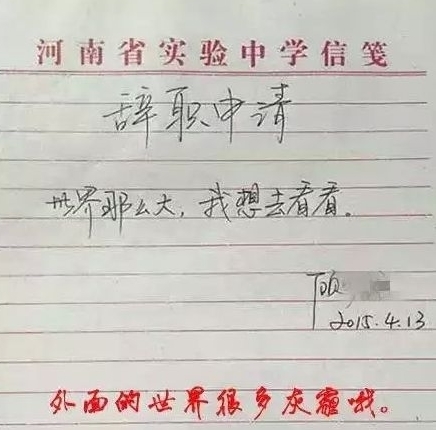 河南省实验中学信笺
辞职申请
世界那么大，我想去看看。
顾
2015.4.13
外面的世界很多灰霾哦。